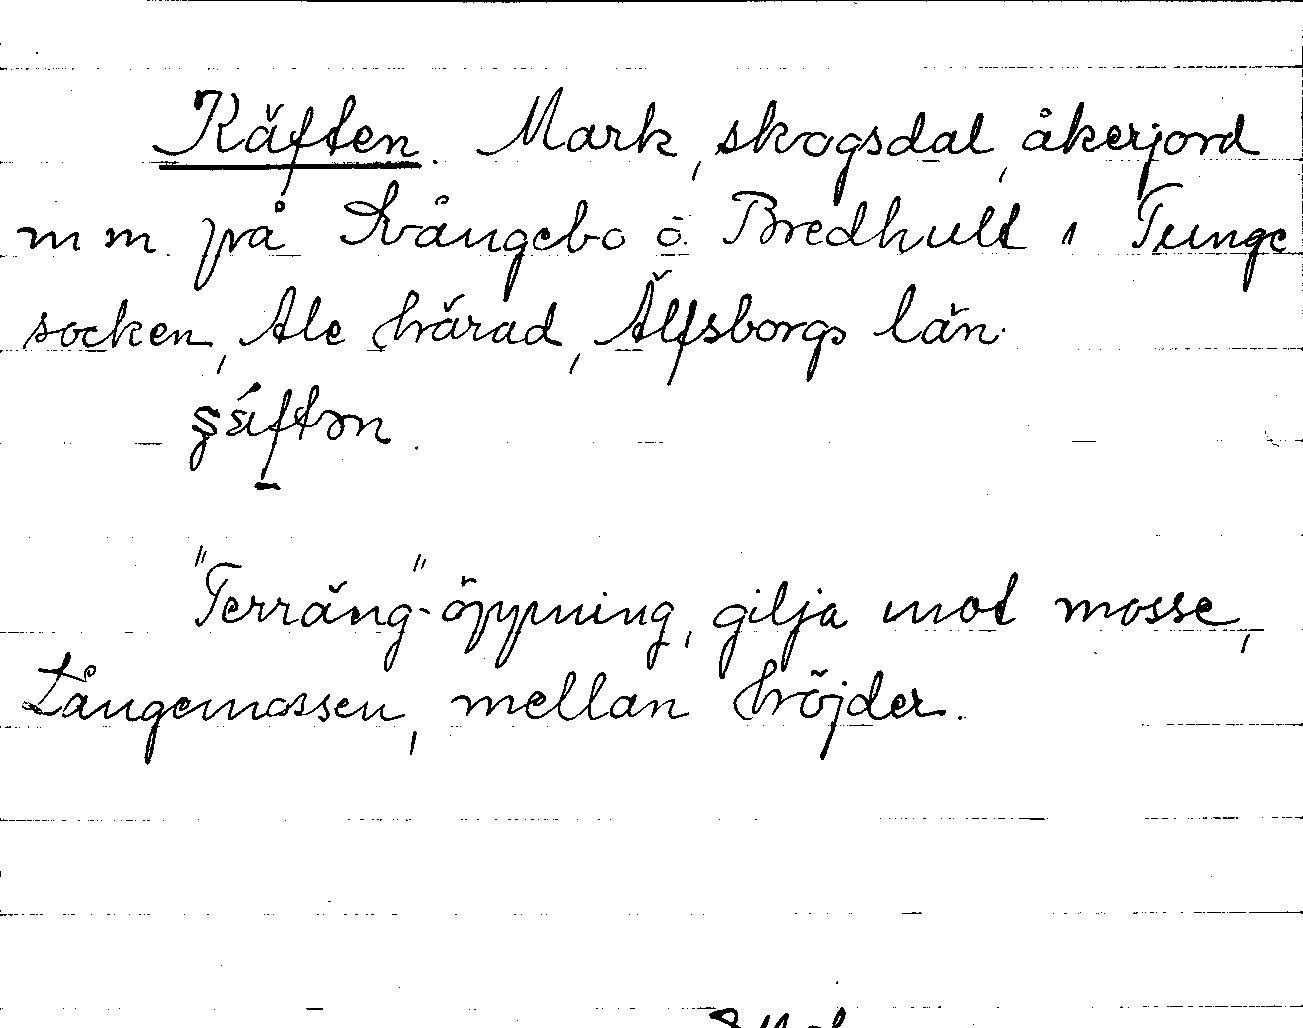 Käften. Mark, skogsdal, åkerjord
m m på Svångebo o. Bredhult i Tunge
socken, Ale härad, Älfsborgs län.
"Terräng"-öppning, gilja mot mosse,
Långemossen, mellan höjder.